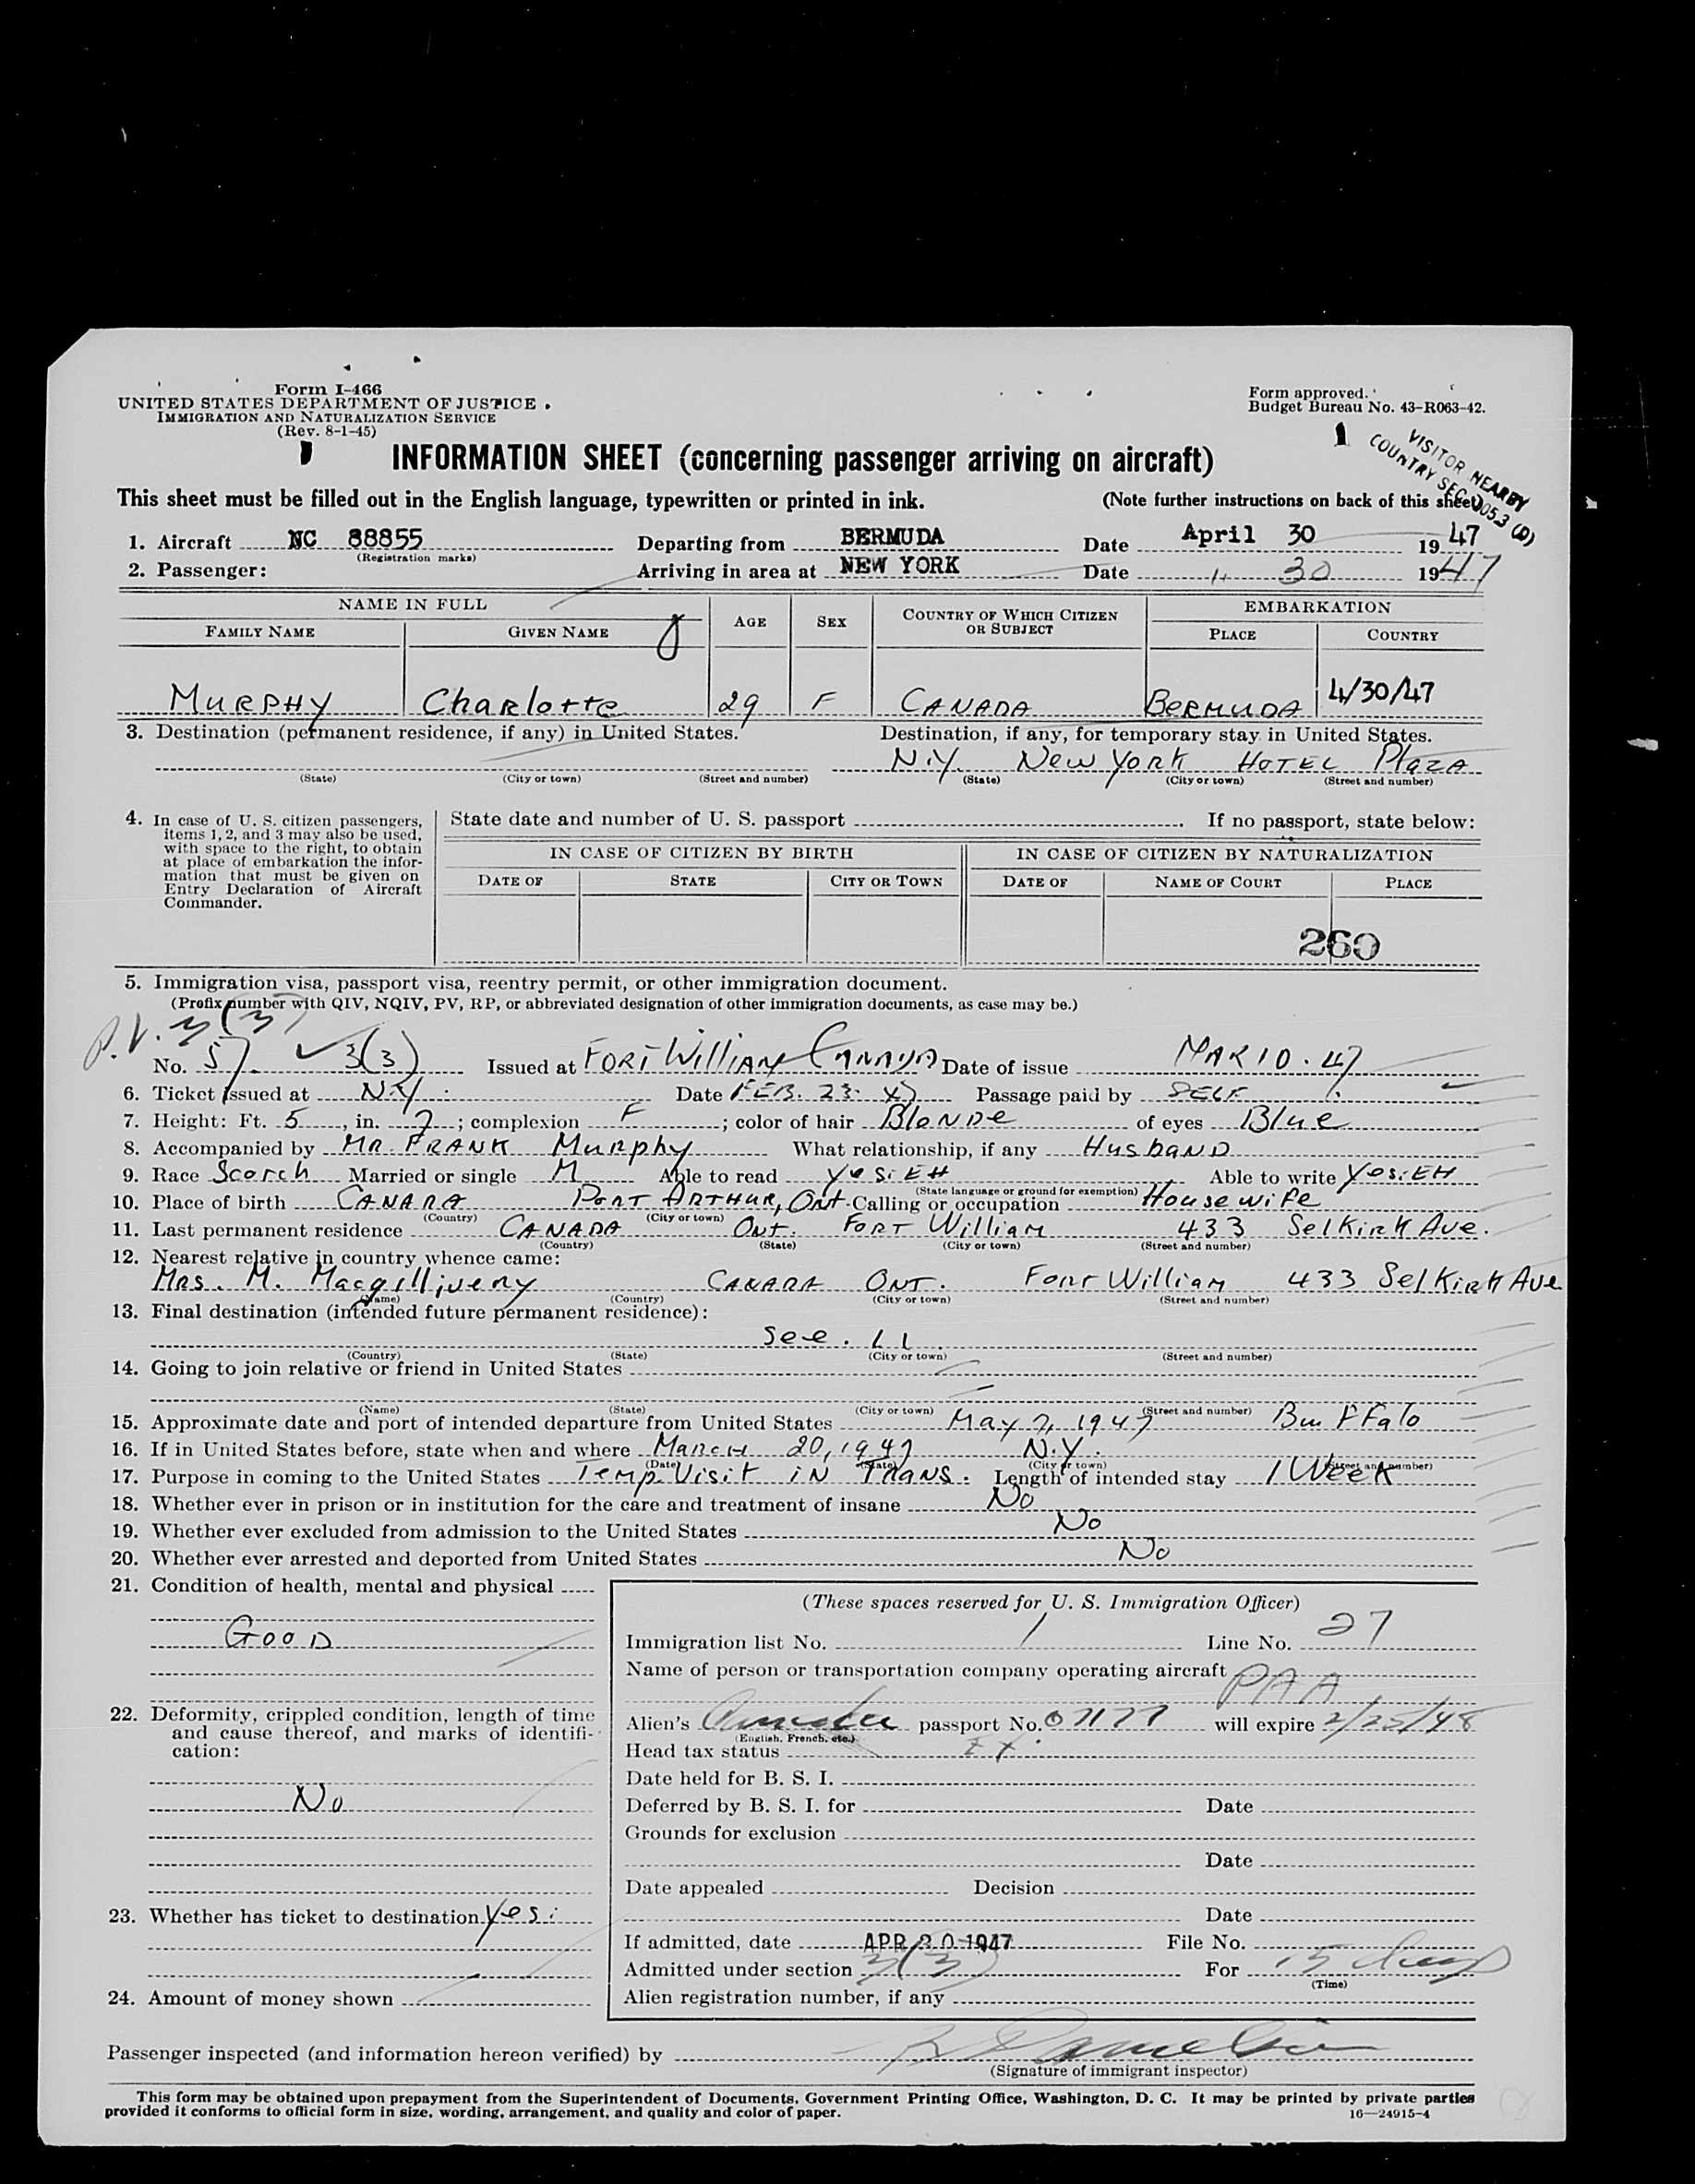 Form I-466
UNITED STATES DEPARTMENT OF JUSTICE
IMMIGRATION AND NATURALIZATION SERVICE
(Rev. 8-1-45)
Form approved.
Budget Bureau No. 43-R063-42.
1
VISITOR NEARBY
COUNTRY SEC.
INFORMATION SHEET (concerning passenger arriving on aircraft)
This sheet must be filled out in the English language, typewritten or printed in ink. (Note further instructions on back of this sheet)
1. Aircraft NC 88855 Departing from BERMUDA Date April 30 1947
(Registration marks)
2. Passenger: Arriving in area at NEW YORK Date " 30 1947
NAME IN FULL AGE SEX COUNTRY OF WHICH CITIZEN OR SUBJECT EMBARKATION
FAMILY NAME GIVEN NAME PLACE COUNTRY
MURPHY Charlotte 29 F CANADA BERMUDA 4/30/47
3. Destination (permanent residence, if any) in United States. Destination, if any, for temporary stay in United States.
N.Y. New York HOTEL Plaza
(State) (City or town) (Street and number) (State) (City or town) (Street and number)
4. In case of U. S. citizen passengers, items 1, 2, and 3 may also be used, with space to the right, to obtain at place of embarkation the information that must be given on Entry Declaration of Aircraft Commander.
State date and number of U. S. passport If no passport, state below:
IN CASE OF CITIZEN BY BIRTH IN CASE OF CITIZEN BY NATURALIZATION
DATE OF STATE CITY OR TOWN DATE OF NAME OF COURT PLACE
260
5. Immigration visa, passport visa, reentry permit, or other immigration document.
(Prefix number with QIV, NQIV, PV, RP, or abbreviated designation of other immigration documents, as case may be.)
P.V. 3(3)
No. 57. 3(3) Issued at FORT William Canada Date of issue MAR 10. 47
6. Ticket issued at N.Y. Date FEB. 23. 47 Passage paid by SELF.
7. Height: Ft. 5, in. 7; complexion F; color of hair BloNDe of eyes Blue
8. Accompanied by MR. FRANK Murphy What relationship, if any HusbanD
9. Race Scotch Married or single M Able to read yes. EH Able to write Yes. EH
(State language or ground for exemption)
10. Place of birth CANADA PORT ARTHUR, Ont. Calling or occupation Housewife
(Country) (City or town)
11. Last permanent residence CANADA Ont. FORT William 433 Selkirk Ave.
(Country) (State) (City or town) (Street and number)
12. Nearest relative in country whence came:
Mrs. M. Macgillivery CANADA ONT. Fort William 433 Selkirk Ave
(Name) (Country) (City or town) (Street and number)
13. Final destination (intended future permanent residence):
See. 11
(Country) (State) (City or town) (Street and number)
14. Going to join relative or friend in United States
(Name) (State) (City or town) (Street and number)
15. Approximate date and port of intended departure from United States May 7, 1947 Buffalo
16. If in United States before, state when and where March 20, 1947 N.Y.
(Date) (State) (City or town) (Street and number)
17. Purpose in coming to the United States Temp. Visit iN TRANS. Length of intended stay 1 Week
18. Whether ever in prison or in institution for the care and treatment of insane No
19. Whether ever excluded from admission to the United States No
20. Whether ever arrested and deported from United States No
21. Condition of health, mental and physical
GOOD
22. Deformity, crippled condition, length of time and cause thereof, and marks of identification:
No
23. Whether has ticket to destination Yes.
24. Amount of money shown
(These spaces reserved for U. S. Immigration Officer)
Immigration list No. 1 Line No. 27
Name of person or transportation company operating aircraft
PAA
Alien's passport No. 07177 will expire 2/25/48
(English, French, etc.)
Head tax status EX.
Date held for B. S. I.
Deferred by B. S. I. for Date
Grounds for exclusion
Date
Date appealed Decision
Date
If admitted, date APR 30 1947 File No.
Admitted under section 3(3) For 15 days
(Time)
Alien registration number, if any
Passenger inspected (and information hereon verified) by
(Signature of immigrant inspector)
This form may be obtained upon prepayment from the Superintendent of Documents, Government Printing Office, Washington, D. C. It may be printed by private parties
provided it conforms to official form in size, wording, arrangement, and quality and color of paper. 16—24915-4